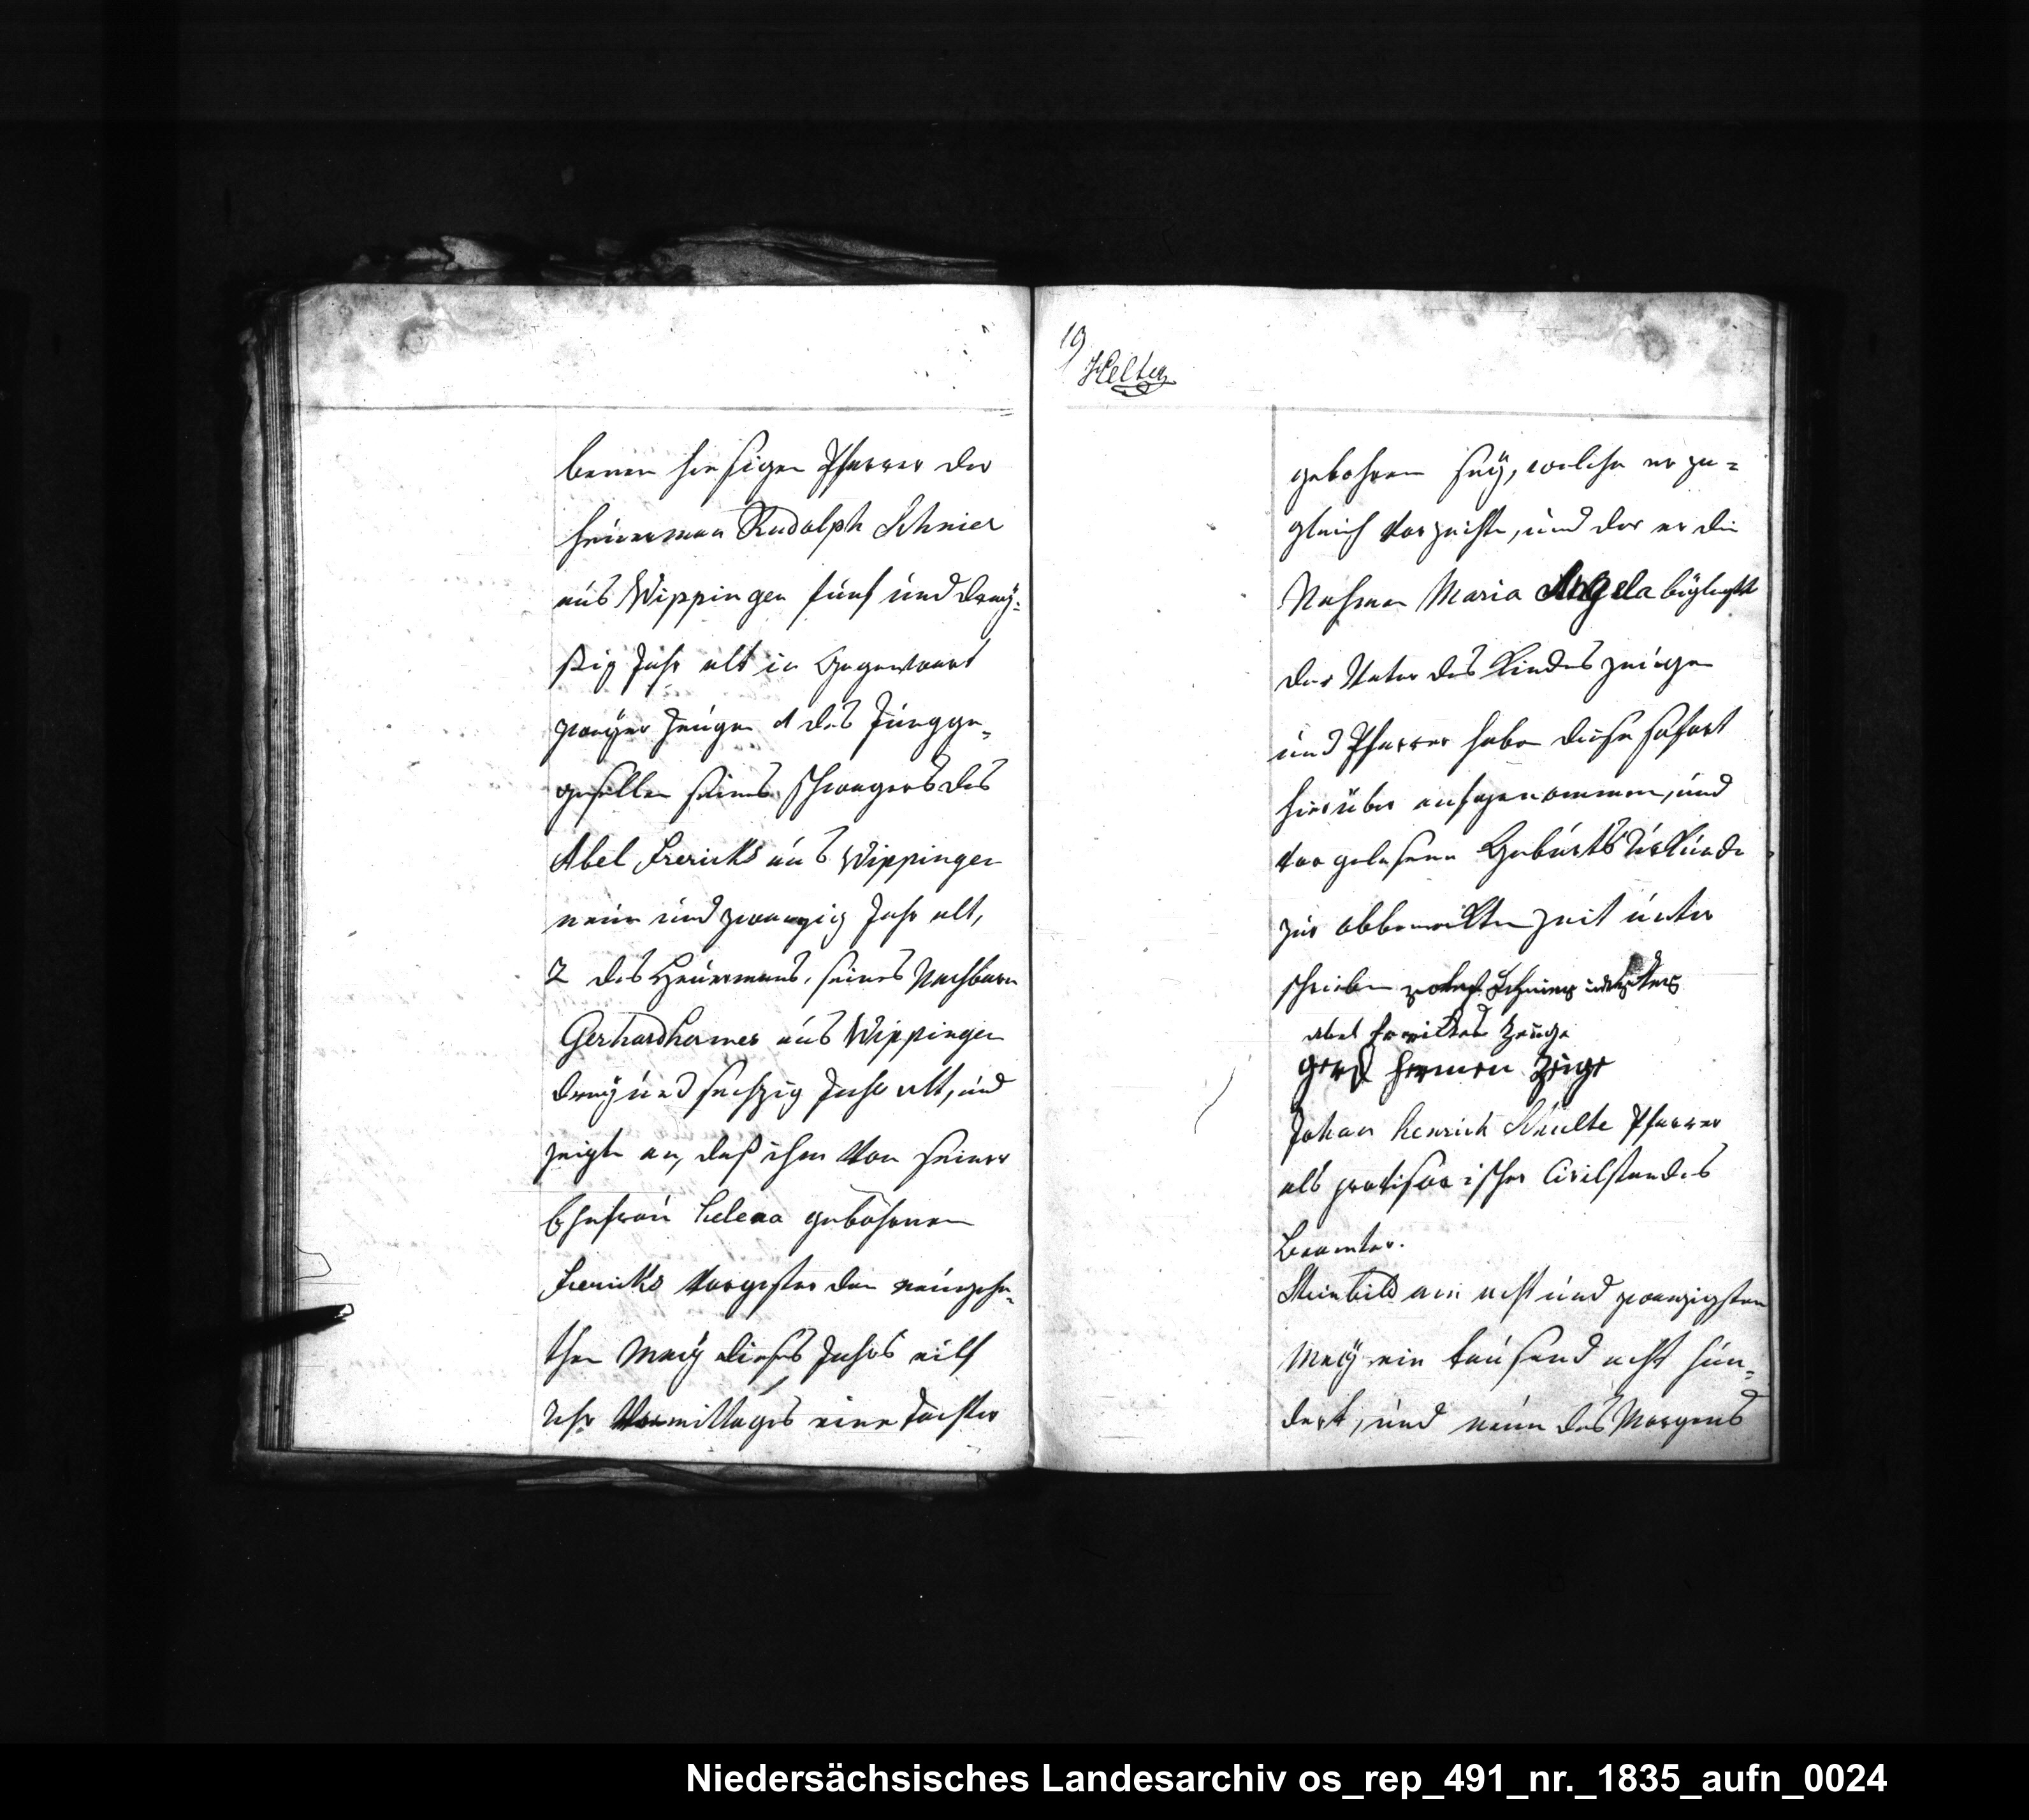 benen hiesigen Pfarrer der
Heuerman Rudolph Schnier
aus Wippingen fünf und drey-
ßig Jahr alt in Gegenwart
zweyer Zeugen 1 des Jungge-
gesellen seines Schwagers des
Abel Frericks aus Wippingen
neun und zwanzig Jahr alt,
2 des Heuermans, seines Nachbarn
Gerhard hermes aus Wippingen
drey und sechzig Jahr alt, und
zeigte an, daß ihm von seiner
Ehefrau helena gebohrnen
Frericks vorgestern den neunzehn-
then May dieses Jahrs eilf
Uhr Vormittages eine Tochter
19
gebohren sey, welche er zu-
gleich vorzeichte, und der er die
Nahmen Maria Angela beylegte
der Vater des Kindes zeugen
und Pfarrer haben diese sofort
hierüber aufgenommen, und
vorgelesene Geburts Urkunde
zur obbemelten zeit unter
schrieben Schnier
abel frerikes Zeuge
gerd hermen Zeuge
Johan henrich Schulte Pfarrer
als provisorischer Civilstandes
Beamter.
Steinbild am acht und zwanzigsten
May ein tausend acht hun-
dert, und neun des Morgens
Niedersächsisches Landesarchiv os_rep_491_nr._1835_aufn_0024